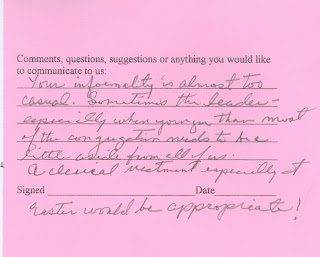 Comments, questions, suggestions or anything you would like
to communicate to us:
Your informality is almost too
casual. Sometimes the leader -
especially when younger than most
of the congregation needs to be a
little aside from all of us.
A clerical vestment especially at
Signed Date
Easter would be appropriate!